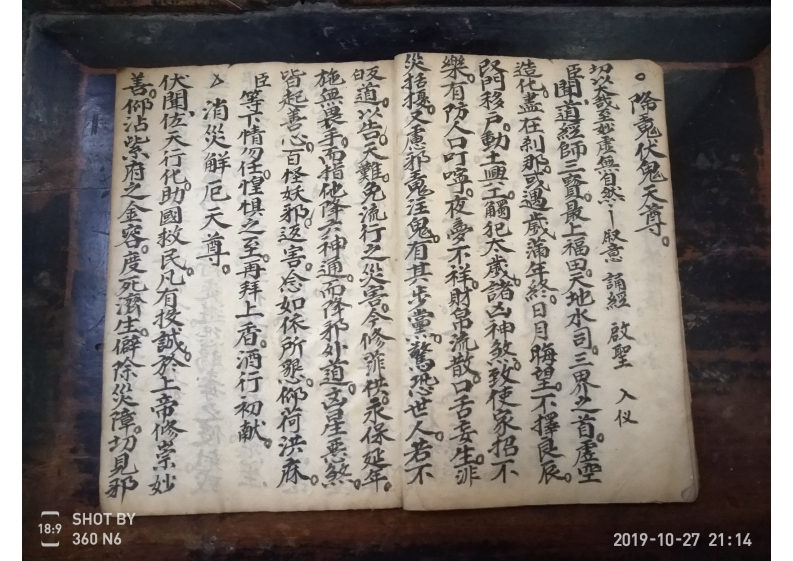 。降魔伏鬼天尊。
切以大哉至妙虚無自然 叚意 誦經 啟聖 入仪
臣聞道經師三寳最上福田。天地水司。三界之首。虚空
造化。盡在刹那。或遇歲滿年終。日月晦望。不擇良辰。
改門移户。動土興工。觸犯太歲。諸凶神煞。致使家招不
樂。有防人口叮嚀。夜夢不祥。財帛流散。口舌妄生。非
災括擾。又慮邪魔注鬼。有其步黨。驚恐世人。若不
皈道。以告天。難免流行之災害。今修 供。永保延年。
臣
施無畏手。而指他降六神通。而降邪外道。凶星惡煞。
皆起善心。百怪妖邪返害。念如依所懇。仰荷洪庥。
臣等下情勿任惶惧之至。再拜上香。酒行初献。
消災解厄天尊。
伏聞佐天行化。助國救民。凡有投誠。於上帝修崇妙
善。仰沾紫府之金容。度死濟生。僻除災障。切見邪
SHOT BY
360 N6
18:9
2019-10-27 21:14